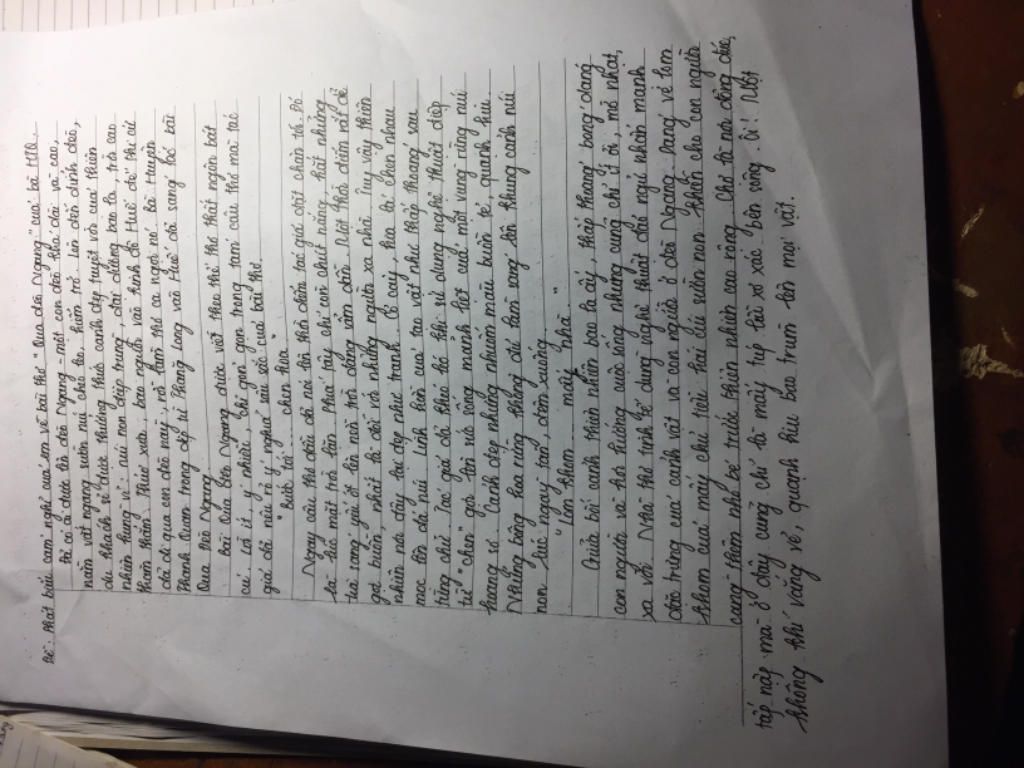 Đề: Phát biểu cảm nghĩ của em về bài thơ "Qua đèo Ngang" của bà HTQ.
Ai có đã được lên đèo Ngang - một con đèo khá dài và cao,
nằm vắt ngang sườn núi chia hai miền trẻ. Lên đến đỉnh đèo,
du khách sẽ được thưởng thức cảnh đẹp tuyệt vời của thiên
nhiên hùng vĩ: núi non điệp trùng, đại dương bao la, trời cao
thăm thẳm. Thuở xưa, bao người vào kinh đô Huế để thi cử
đã đi qua con đèo này, và làm thơ ca ngợi nó. Bà Huyện
Thanh Quan trong dịp từ Thăng Long vào Huế đã sáng tác bài
Qua Đèo Ngang.
Bài Qua Đèo Ngang được viết theo thể thơ thất ngôn bát
cú, lời ít, ý nhiều, chỉ gói gọn trong tám câu thơ mà tác
giả đã nêu rõ ý nghĩa sâu sắc của bài thơ.
"Bước tới chen hoa"
Ngay câu thơ đầu đã nói lên thời điểm tác giả đặt chân tới. Đó
là lúc mặt trời lặn phía tây chỉ còn chút nắng, thật những
tia sáng yếu ớt lên nền trời đang vẩn dần. Một thời điểm rất dễ
gợi buồn, nhất là đối với những người xa nhà. Tuy vậy thiên
nhiên nơi đây lại đẹp như tranh. Cỏ cây, hoa lá chen nhau
mọc lên đá núi. Linh hồn của tạo vật như thấp thoáng sau
từng chữ. Tác giả đã khéo léo khi sử dụng nghệ thuật điệp
từ "chen" gợi lên sức sống mãnh liệt của một vùng rừng núi
hoang sơ. Cảnh đẹp nhưng nhuốm màu buồn tẻ, quạnh hiu.
Những bông hoa rừng chẳng đủ làm sáng lên khung cảnh núi
non lúc ngày tàn, đêm xuống.
"Lom khom mấy nhà"
Giữa bối cảnh thiên nhiên bao la ấy, thấp thoáng bóng dáng
con người và thơ hướng cuộc sống nhưng cũng chỉ ít ỏi, mờ nhạt,
xa vời. Nhà thơ tinh tế dùng nghệ thuật đảo ngữ nhấn mạnh
đặc trưng của cảnh vật và con người ở đèo Ngang. Dáng vẻ lom
khom của mấy chú tiều hái củi sườn non khiến cho con người
càng thêm nhỏ bé trước thiên nhiên cao rộng. Chợ là nơi đông đúc,
tấp nập mà ở đây cũng chỉ là mấy túp lều xơ xác bên sông. Ôi! Một
không khí vắng vẻ, quạnh hiu bao trùm lên mọi vật.